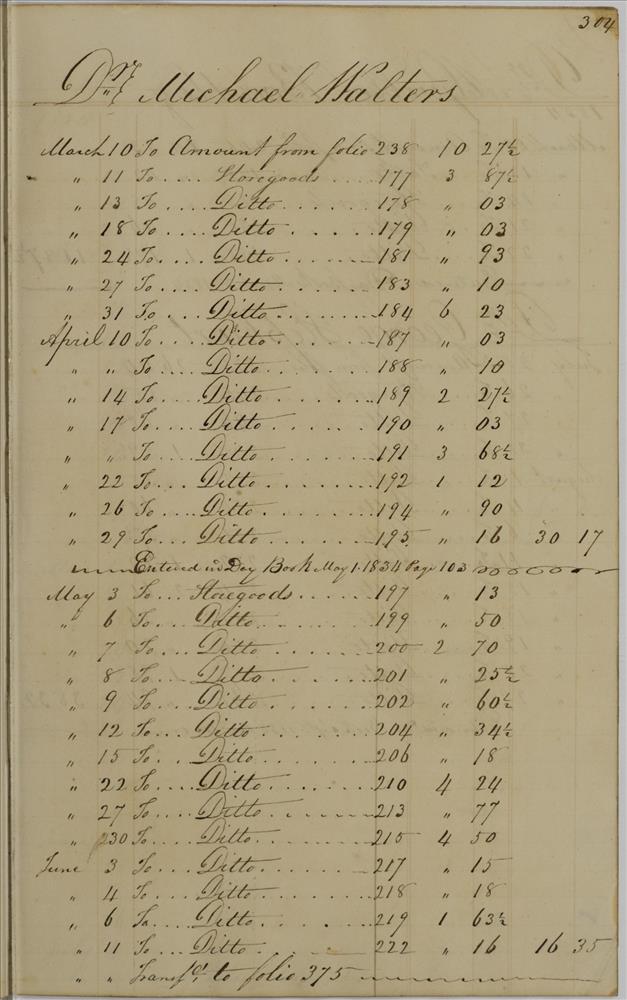 304
Dr. Michael Walters
March 10 To Amount from folio 238 10 27½
" 11 To .... Storegoods ..... 177 3 87½
" 13 To .... Ditto ...... 178 " 03
" 18 To .... Ditto ...... 179 " 03
" 24 To .... Ditto ...... 181 " 93
" 27 To .... Ditto ...... 183 " 10
" 31 To .... Ditto ...... 184 6 23
April 10 To .... Ditto ...... 187 " 03
" " To .... Ditto ...... 188 " 10
" 14 To .... Ditto ...... 189 2 27½
" 17 To .... Ditto ...... 190 " 03
" " To .... Ditto ...... 191 3 68½
" 22 To .... Ditto ...... 192 1 12
" 26 To .... Ditto ...... 194 " 90
" 29 To .... Ditto ...... 195 " 16 30 17
Entered in Day Book May 1. 1834 Page 103
May 3 To ... Storegoods ...... 197 " 13
" 6 To .... Ditto ...... 199 " 50
" 7 To .... Ditto ...... 200 2 70
" 8 To .... Ditto ...... 201 " 25½
" 9 To .... Ditto ...... 202 " 60½
" 12 To .... Ditto ...... 204 " 34½
" 15 To .... Ditto ...... 206 " 18
" 22 To .... Ditto ...... 210 4 24
" 27 To .... Ditto ...... 213 " 77
" 30 To .... Ditto ...... 215 4 50
June 3 To .... Ditto ...... 217 " 15
" 4 To .... Ditto ...... 218 " 18
" 6 To .... Ditto ...... 219 1 63½
" 11 To .... Ditto ...... 222 " 16 16 35
" " Transfd. to folio 375